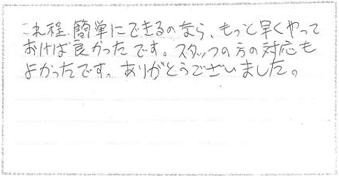 これ程、簡単にできるのなら、もっと早くやって
おけば良かったです。スタッフの方の対応も
よかったです。ありがとうございました。